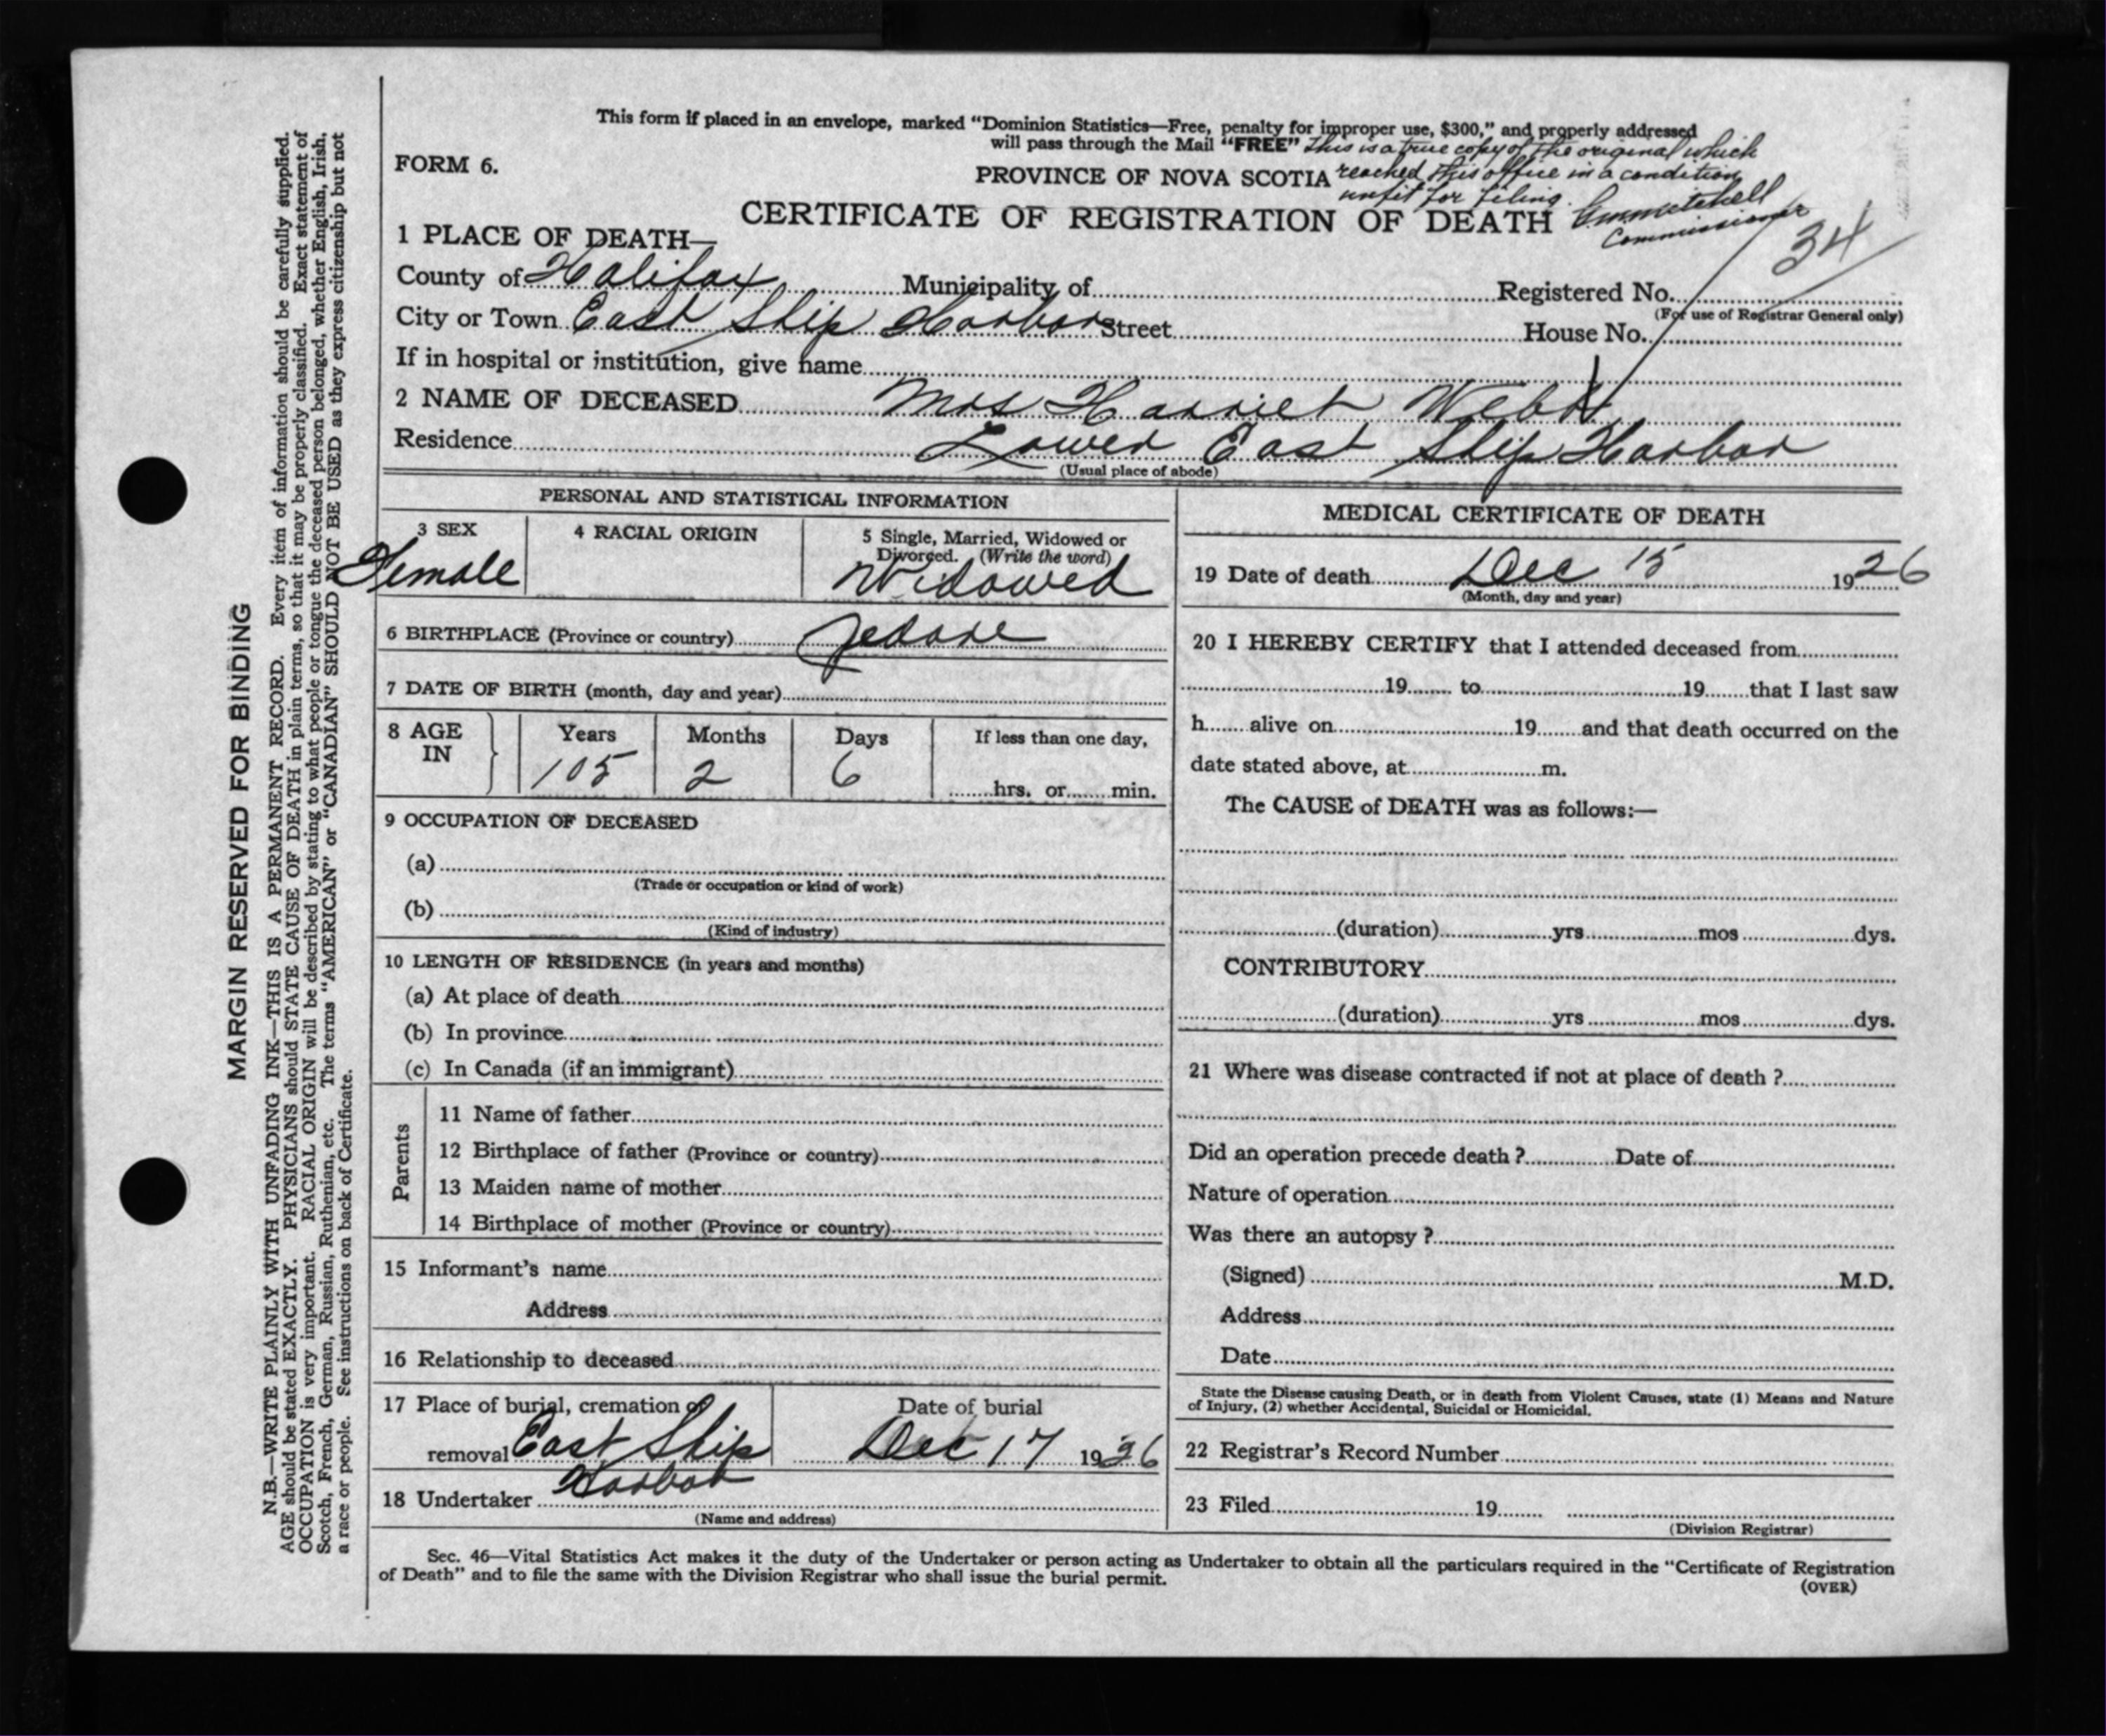 This form if placed in an envelope, marked "Dominion Statistics—Free, penalty for improper use, $300," and properly addressed
will pass through the Mail "FREE" This is a true copy of the original which
FORM 6.
PROVINCE OF NOVA SCOTIA reached this office in a condition
unfit for filing.
CERTIFICATE OF REGISTRATION OF DEATH
Commissioner
34
1 PLACE OF DEATH—
County of Halifax Municipality of Registered No.
(For use of Registrar General only)
City or Town East Ship Harbor Street House No.
If in hospital or institution, give name
2 NAME OF DECEASED Mrs Harriet Webb
Residence Lower East Ship Harbor
(Usual place of abode)
PERSONAL AND STATISTICAL INFORMATION
3 SEX
Female
4 RACIAL ORIGIN
5 Single, Married, Widowed or
Divorced. (Write the word)
Widowed
6 BIRTHPLACE (Province or country) Jedore
7 DATE OF BIRTH (month, day and year)
8 AGE IN
Years Months Days If less than one day,
105 2 6 hrs. or min.
9 OCCUPATION OF DECEASED
(a)
(Trade or occupation or kind of work)
(b)
(Kind of industry)
10 LENGTH OF RESIDENCE (in years and months)
(a) At place of death
(b) In province
(c) In Canada (if an immigrant)
Parents
11 Name of father
12 Birthplace of father (Province or country)
13 Maiden name of mother
14 Birthplace of mother (Province or country)
15 Informant's name
Address
16 Relationship to deceased
17 Place of burial, cremation or
removal East Ship
Harbor
Date of burial
Dec 17 1926
18 Undertaker
(Name and address)
MEDICAL CERTIFICATE OF DEATH
19 Date of death Dec 15 1926
(Month, day and year)
20 I HEREBY CERTIFY that I attended deceased from
19 to 19 that I last saw
h alive on 19 and that death occurred on the
date stated above, at m.
The CAUSE of DEATH was as follows:—
(duration) yrs mos dys.
CONTRIBUTORY
(duration) yrs mos dys.
21 Where was disease contracted if not at place of death ?
Did an operation precede death ? Date of
Nature of operation
Was there an autopsy ?
(Signed) M.D.
Address
Date
State the Disease causing Death, or in death from Violent Causes, state (1) Means and Nature
of Injury, (2) whether Accidental, Suicidal or Homicidal.
22 Registrar's Record Number
23 Filed 19
(Division Registrar)
Sec. 46—Vital Statistics Act makes it the duty of the Undertaker or person acting as Undertaker to obtain all the particulars required in the "Certificate of Registration
of Death" and to file the same with the Division Registrar who shall issue the burial permit.
(OVER)
MARGIN RESERVED FOR BINDING
N.B.—WRITE PLAINLY WITH UNFADING INK—THIS IS A PERMANENT RECORD. Every item of information should be carefully supplied.
AGE should be stated EXACTLY. PHYSICIANS should STATE CAUSE OF DEATH in plain terms, so that it may be properly classified. Exact statement of
OCCUPATION is very important. RACIAL ORIGIN will be described by stating to what people or tongue the deceased person belonged, whether English, Irish,
Scotch, French, German, Russian, Ruthenian, etc. The terms "AMERICAN" or "CANADIAN" SHOULD NOT BE USED as they express citizenship but not
a race or people. See instructions on back of Certificate.